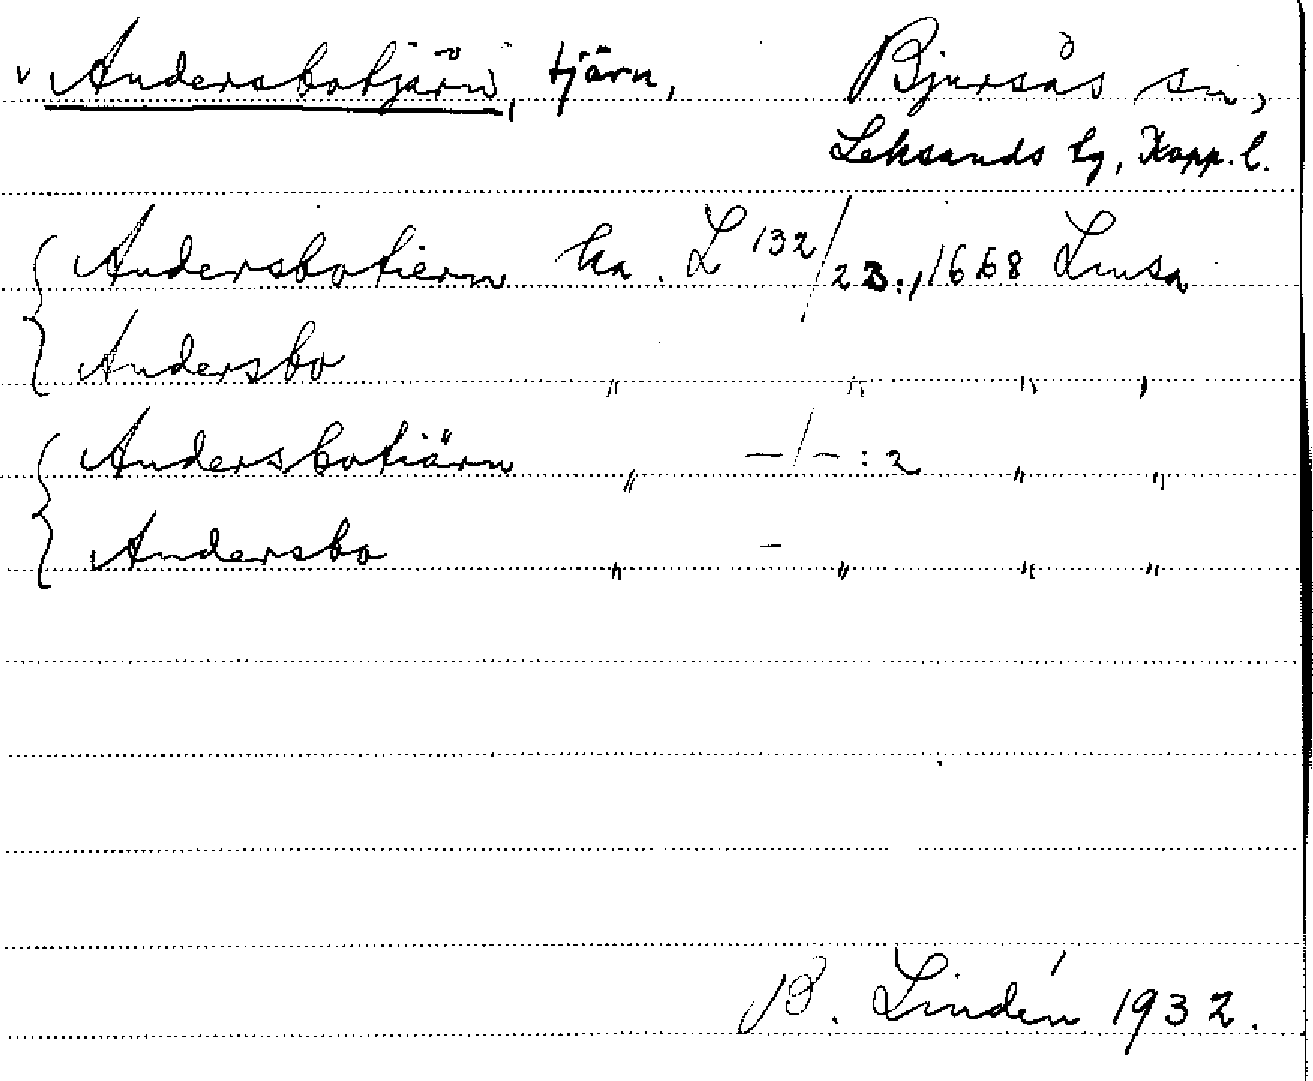 v Andersbotjärn, tjärn, Bjursås sn,
Leksands tg, Kopp. l.
Andersbotiern ka. L 132/23:, 1668 Lmsa
Andersbo " " " "
Andersbotiärn " —/— : 2 " "
Andersbo " — " " "
B. Lindén 1932.